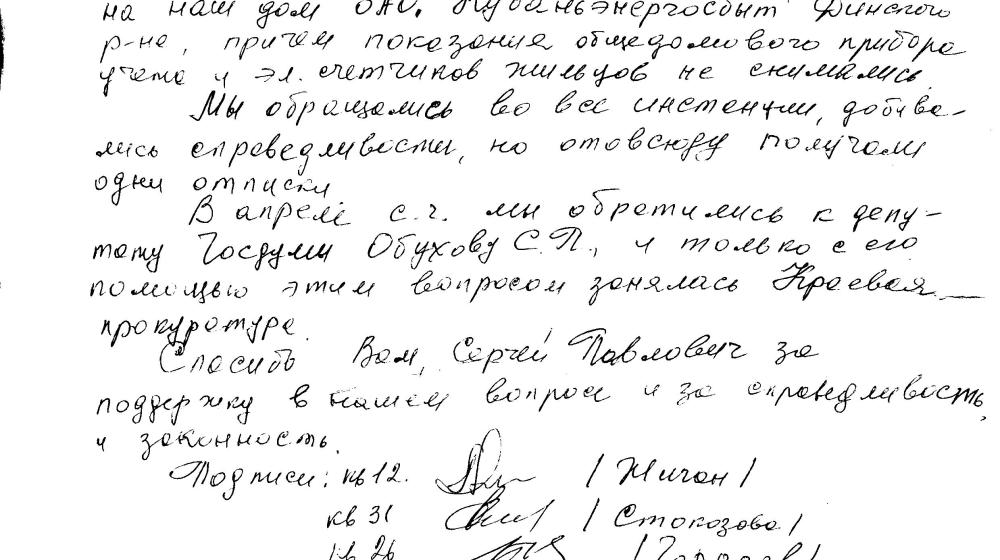 на наш дом ОАО "Кубаньэнергосбыт" Динского
р-на, причем показания общедомового прибора
учета и эл. счетчиков жильцов не снимались.
Мы обращались во все инстенции, добива-
лись справедливости, но отовсюду получали
одни отписки
В апреле с.г. мы обратились к депу-
тату Госдумы Обухову С.П., и только с его
помощью этим вопросом занялась Краевая
прокуратура.
Спасибо Вам, Сергей Павлович за
поддержку в нашем вопросе и за справедливость
и законность.
Подписи: кв 12. / Жиган /
кв 31 / Стокозова /
кв 26